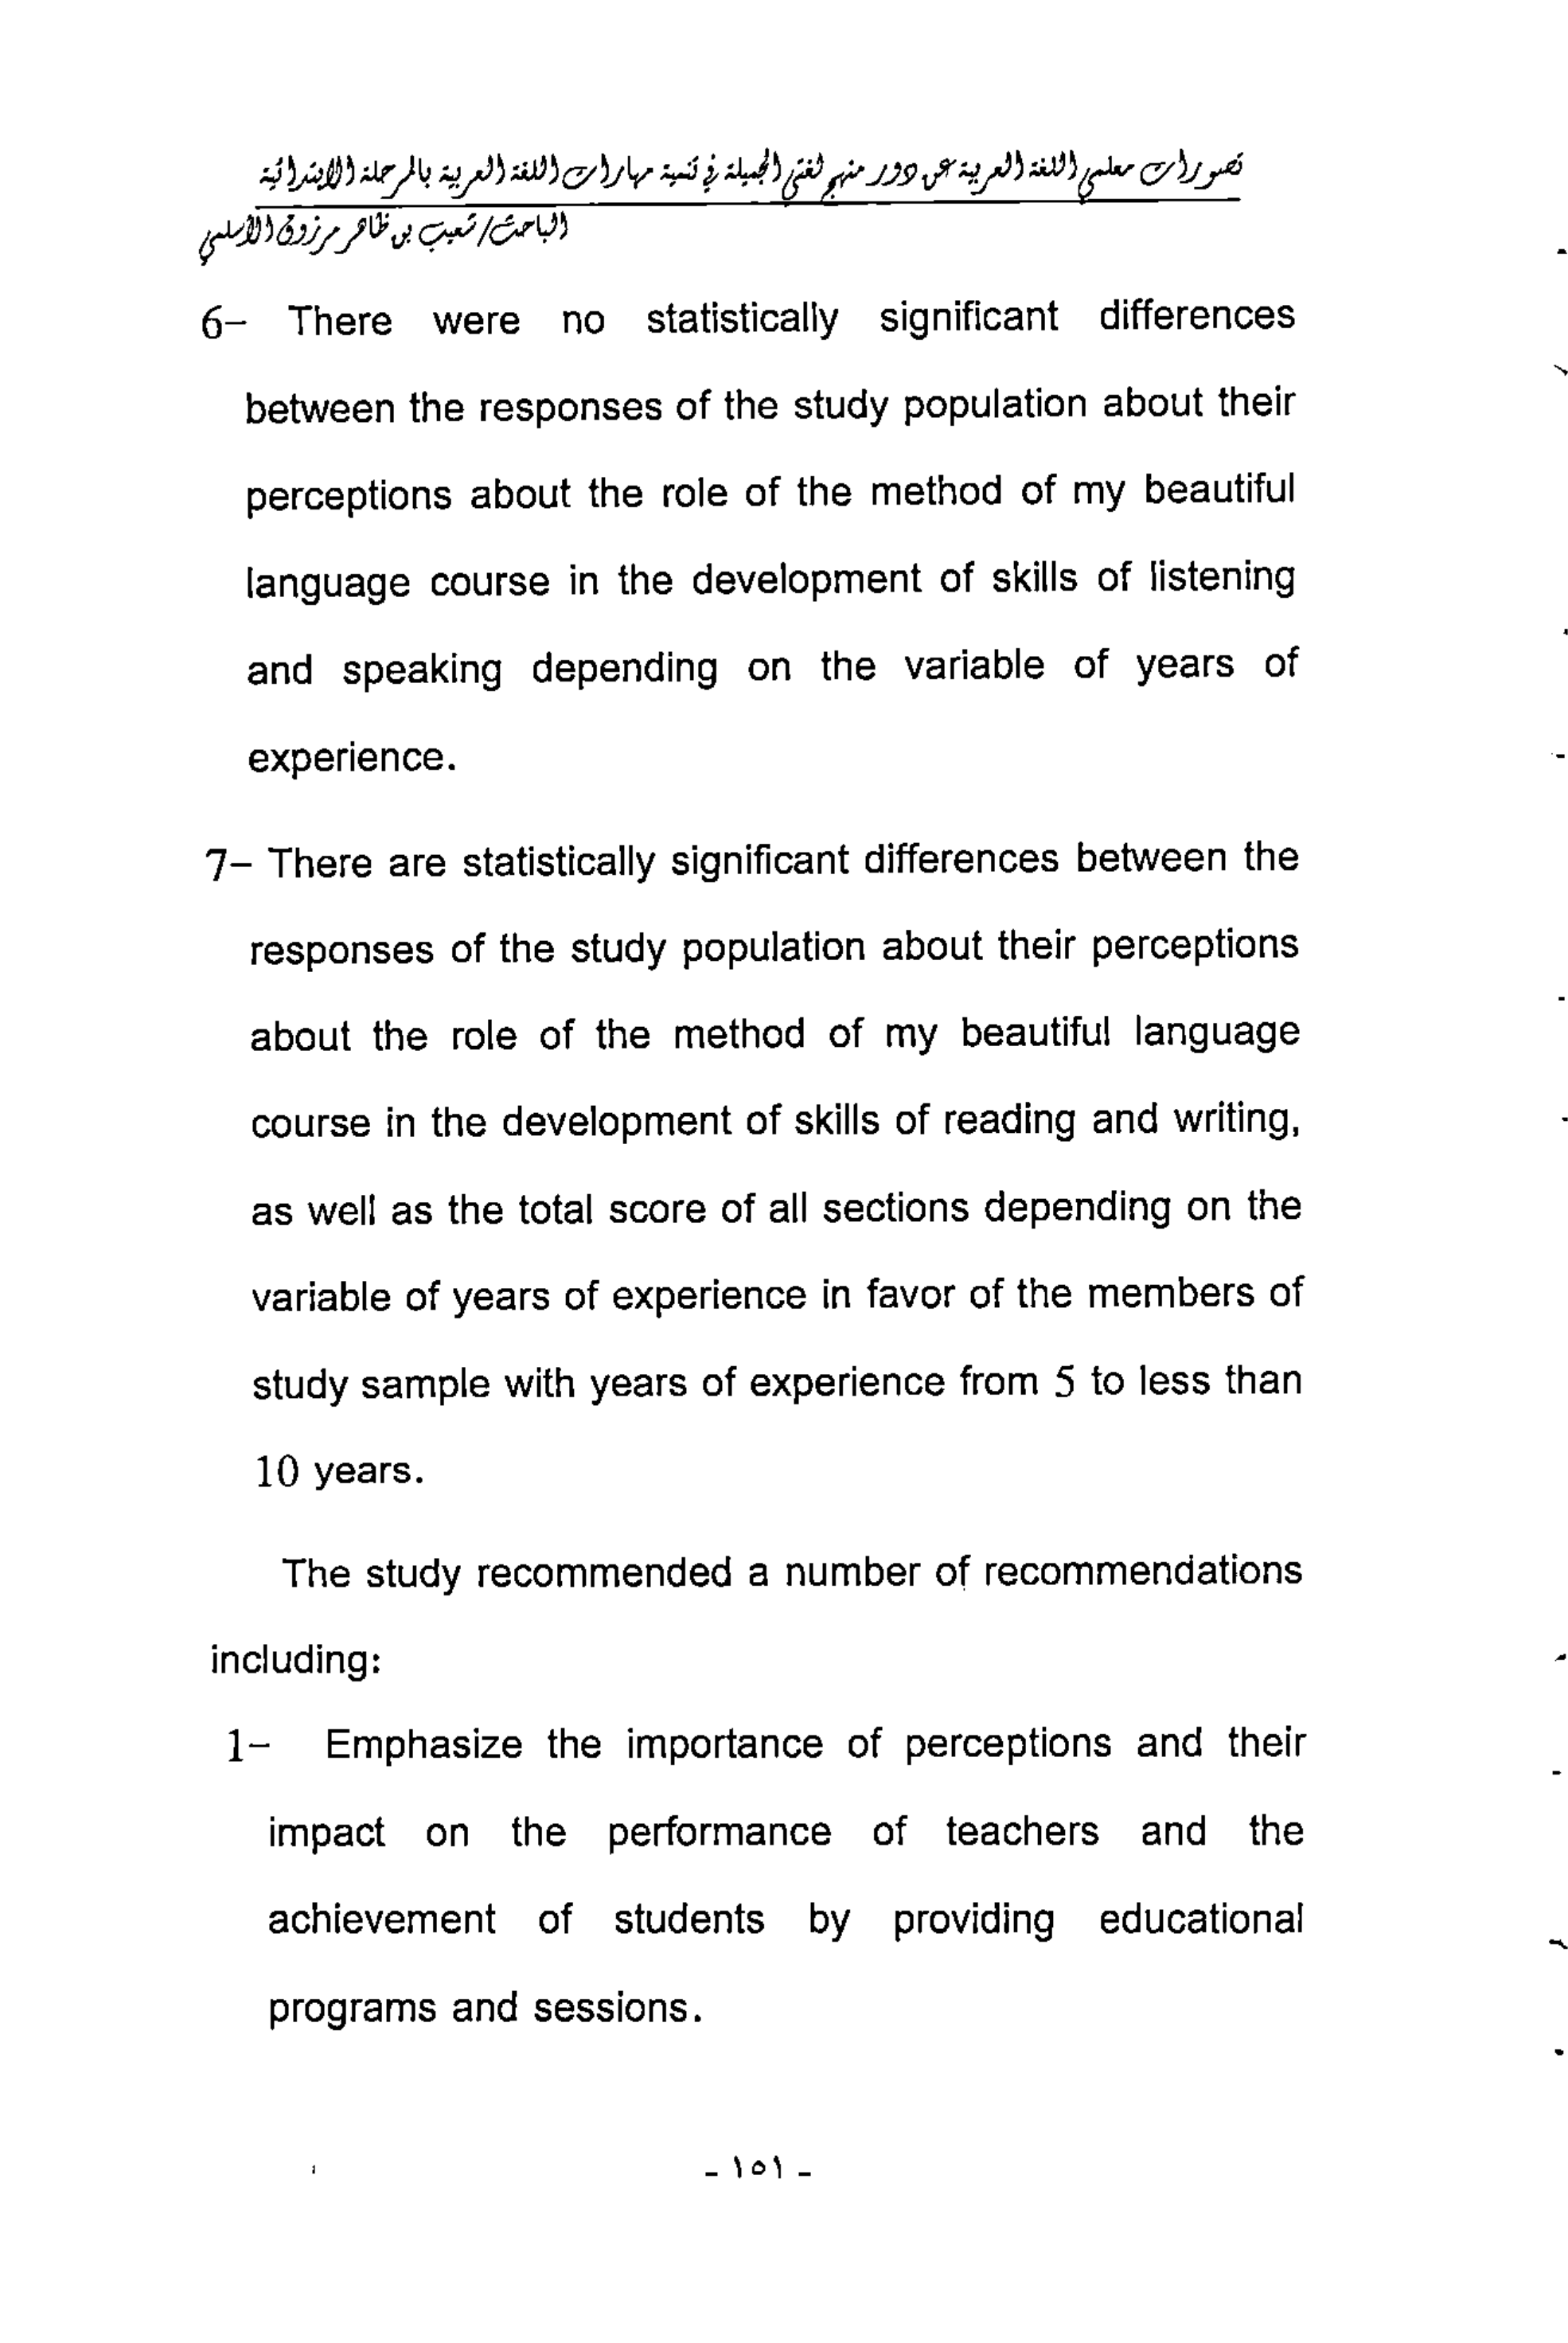 تصورات معلمي اللغة العربية عن دور منهج لغتي الجميلة في تنمية مهارات اللغة العربية بالمرحلة الابتدائية
الباحث/ شعيب بن ظاهر مرزوق الأسلمي
6– There were no statistically significant differences
between the responses of the study population about their
perceptions about the role of the method of my beautiful
language course in the development of skills of listening
and speaking depending on the variable of years of
experience.
7– There are statistically significant differences between the
responses of the study population about their perceptions
about the role of the method of my beautiful language
course in the development of skills of reading and writing,
as well as the total score of all sections depending on the
variable of years of experience in favor of the members of
study sample with years of experience from 5 to less than
10 years.
The study recommended a number of recommendations
including:
1– Emphasize the importance of perceptions and their
impact on the performance of teachers and the
achievement of students by providing educational
programs and sessions.
- ١٥١ -